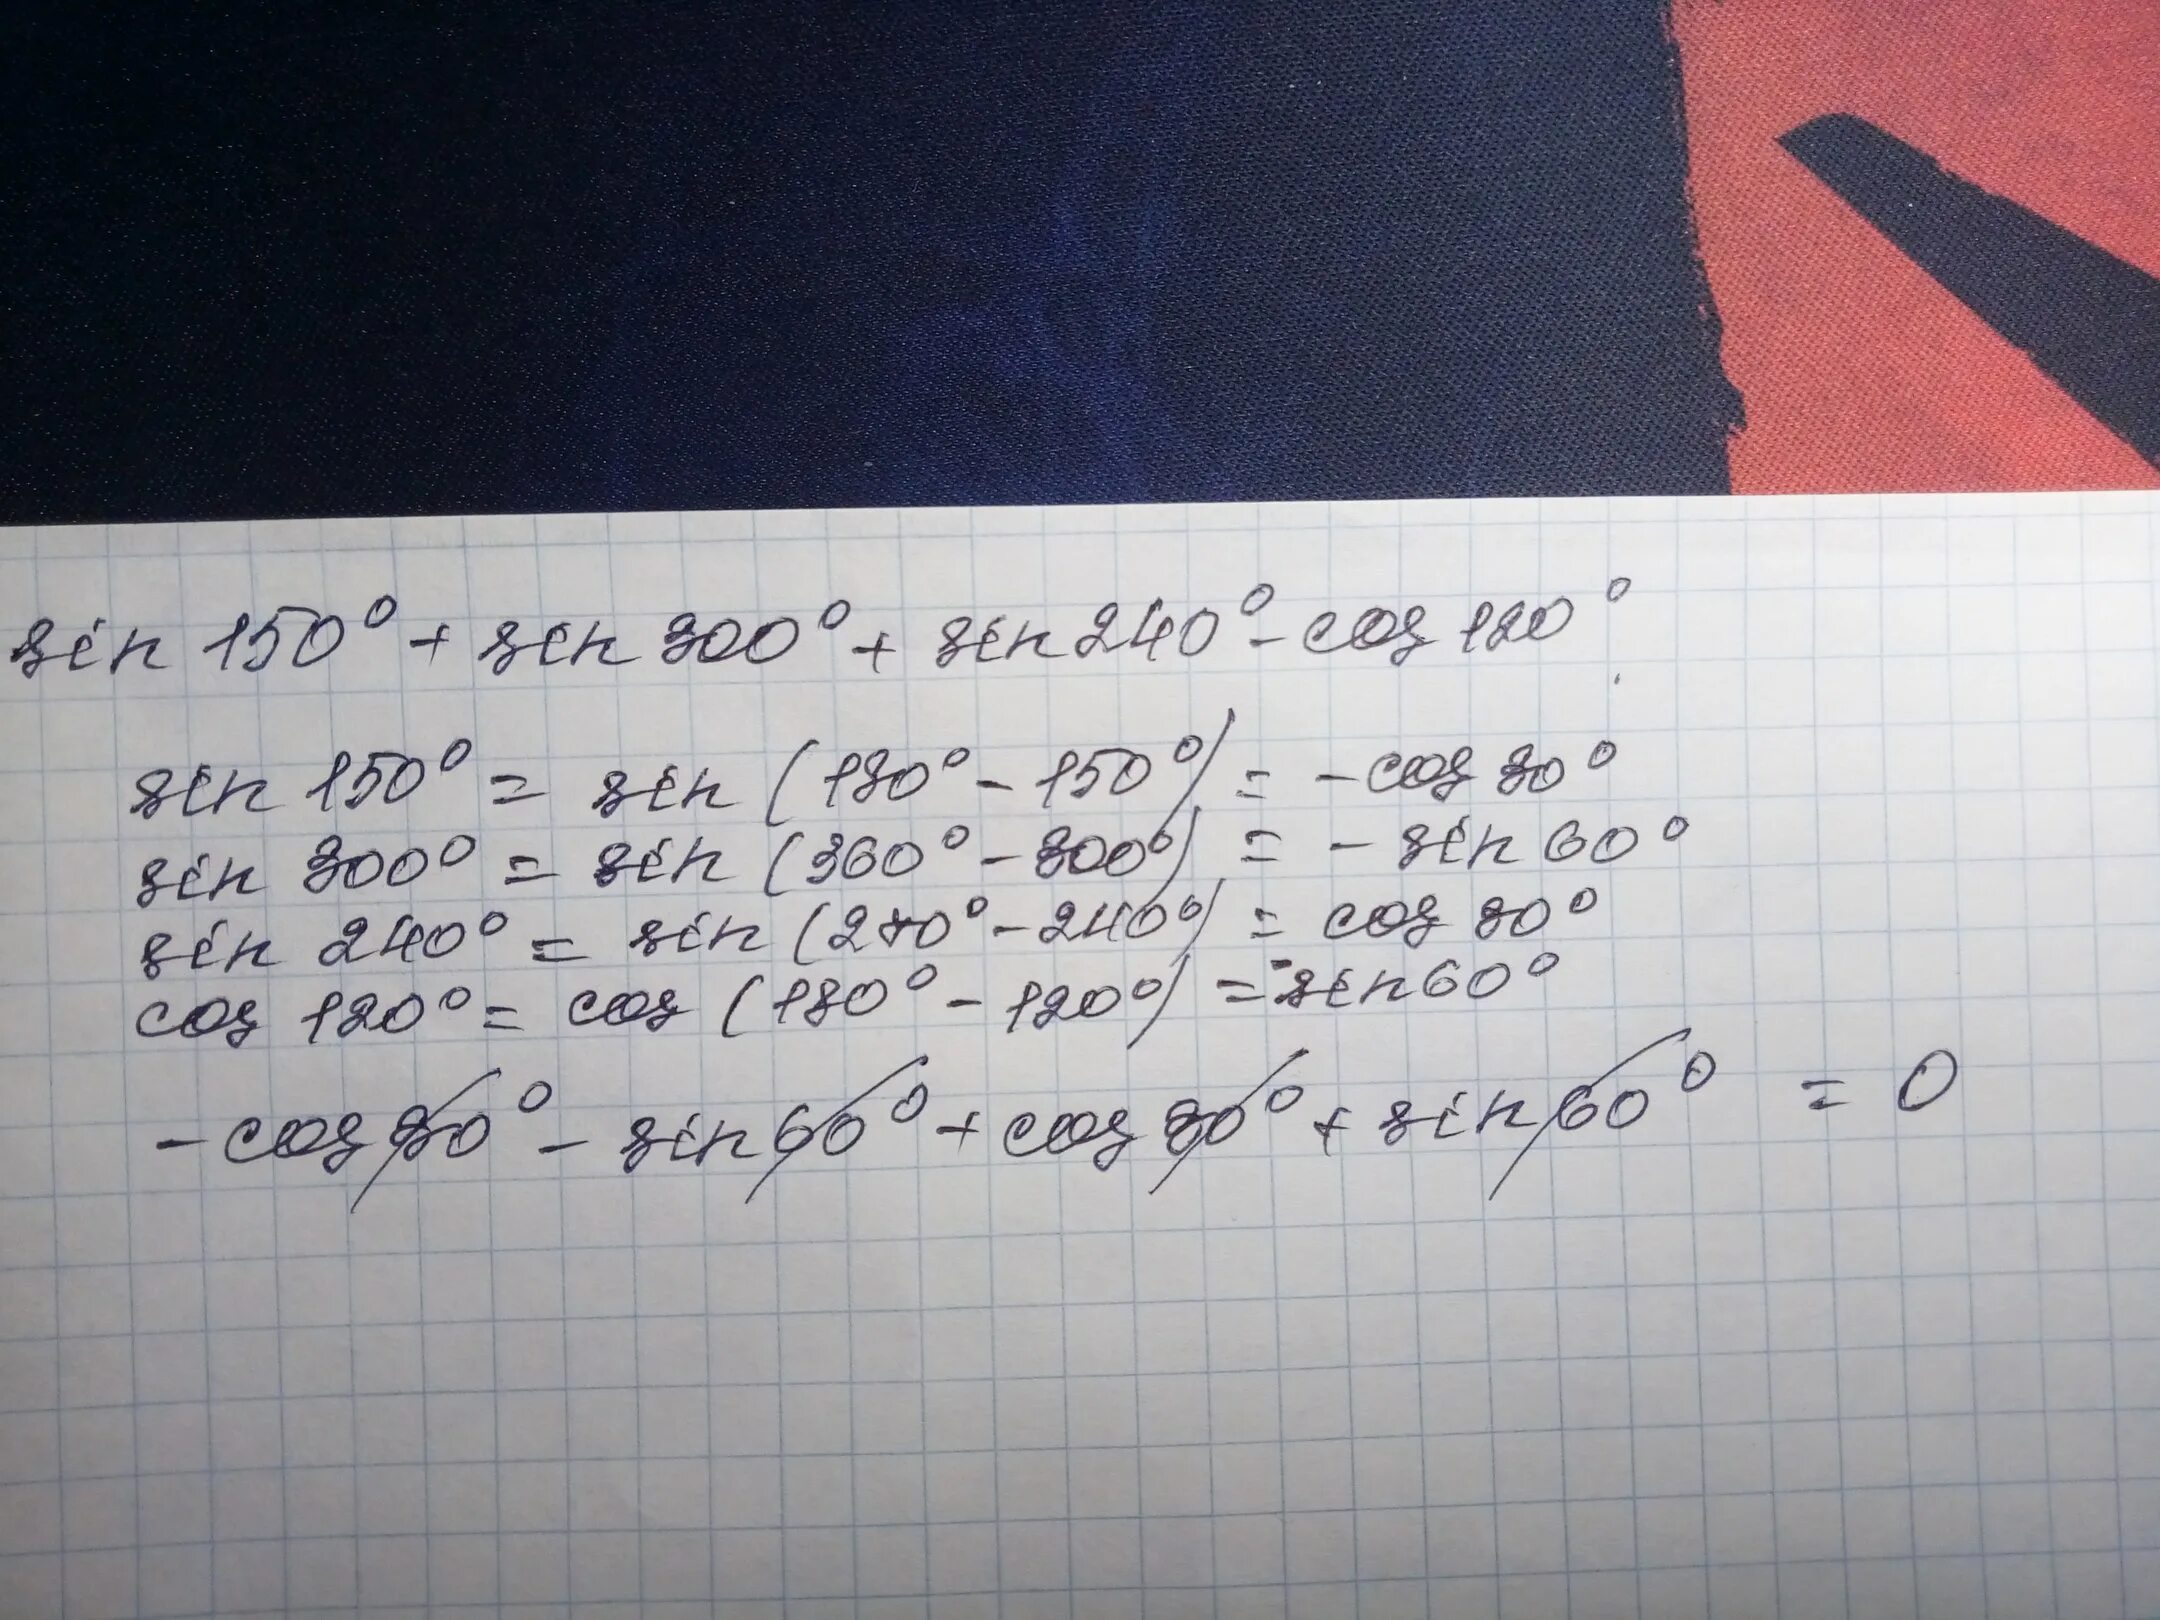 sin 150° + sin 300° + sin 240° - cos 120°
sin 150° = sin (180° - 150°) = - cos 30°
sin 300° = sin (360° - 300°) = - sin 60°
sin 240° = sin (270° - 240°) = cos 30°
cos 120° = cos (180° - 120°) = - sin 60°
- cos 30° - sin 60° + cos 30° + sin 60° = 0